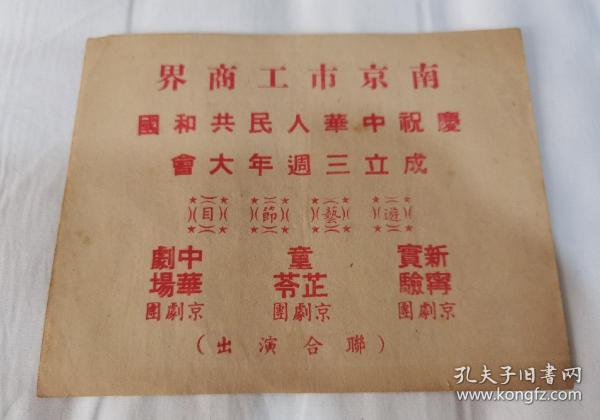 南京市工商界
慶祝中華人民共和國
成立三週年大會
遊藝節目
新寧實驗京劇團
童芷苓京劇團
中華劇場京劇團
(聯合演出)
孔夫子旧书网
www.kongfz.com